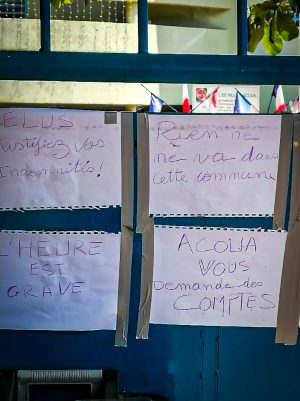 ELUS
Justifiez vos
Indemnités!
Rien ne
ne va dans
cette commune
L'HEURE
EST
GRAVE
ACOUA
VOUS
Demande des
COMPTES